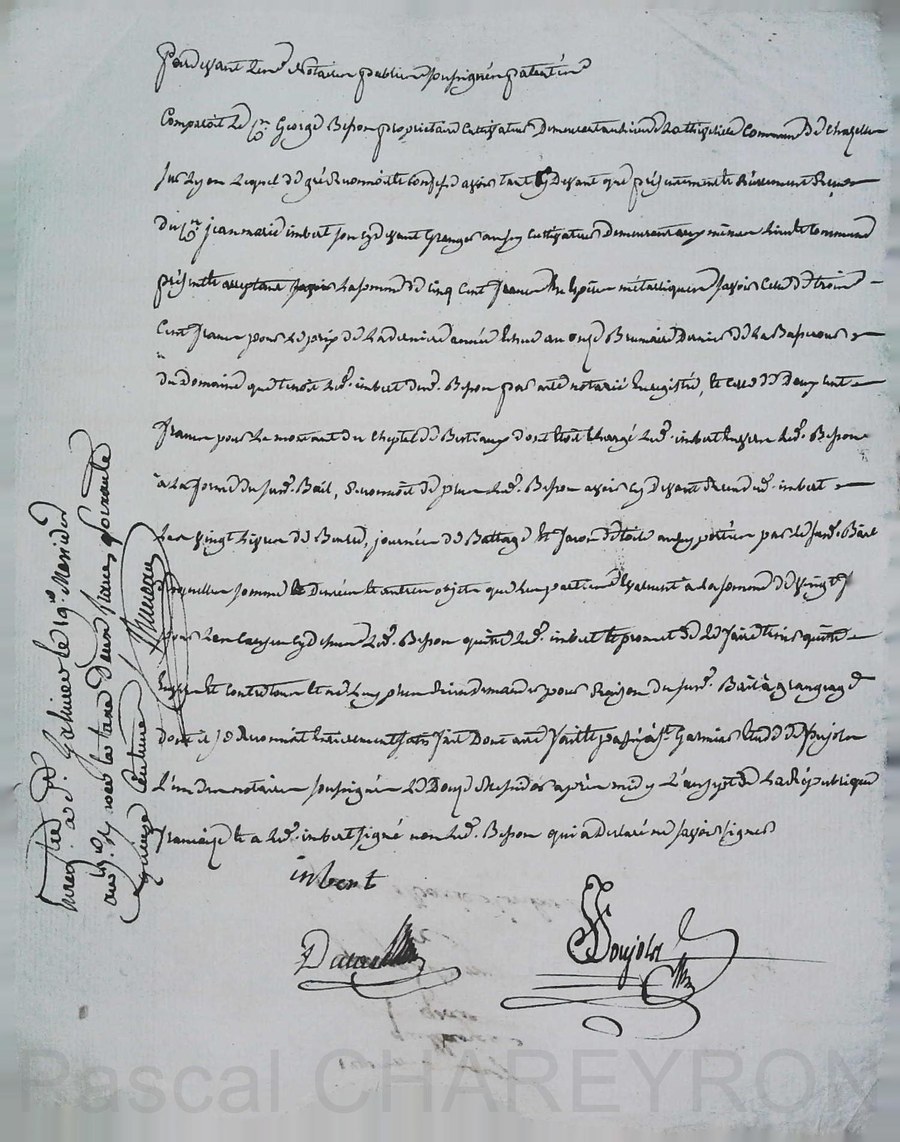 Pardevant les nres Notaires publics soussignés patentés
Comparoit Le Cn George Besson propriétaire Cultivateur Demeurant au lieu de La Commune de Chazelles
sur Lyon Lequel de gré Reconnoit et Confesse avoir tant Cy Devant que présentement et Réellement Reçu
du Cn jean marie imbert son cy devant Granger aussy Cultivateur Demeurant aux mêmes lieu et Commune
présent et acceptant La somme de Cinq Cent francs En Espèces métalliques savoir Celle de trois
Cent francs pour Le prix de La dernière année échue au onze Brumaire Dernier de La
du Domaine que tenoit led. imbert dud. Besson par acte notarié Enregistré, et celle de Deux Cent
francs pour Le montant du Cheptel de Bestiaux dont étoit Chargé led. imbert Envers led. Besson
à La forme du susd. Bail, Reconnoit de plus led. Besson avoir Cy Devant Reçu dud. imbert
Les vingt livres de Beurre, journées de Battage et façon de toile aussy portées par le susd. Bail
Lesquelles sommes et Denrées et autres objets que Les parties Evaluent à La somme de vingt f
led. Besson quitte led. imbert et promet de le faire tenir quitte
Envers et contre tous et ne Luy plus Rien demander pour Raison du susd. Bail à grangeage
dont il se Reconnoit Entièrement satisfait Dont acte fait et passé à St. Galmier Etude de Poujols
L'un des notaires soussignés Le Douze Messidor après midy L'an sept de La République
française et a led. imbert signé non led. Besson qui a déclaré ne savoir signer
imbert
Poujols
Enreg.tré à St. Galmier le 19 Messidor
an 7 reçu la taxe Deux francs soixante
quinze Centimes
Pascal CHAREYRON